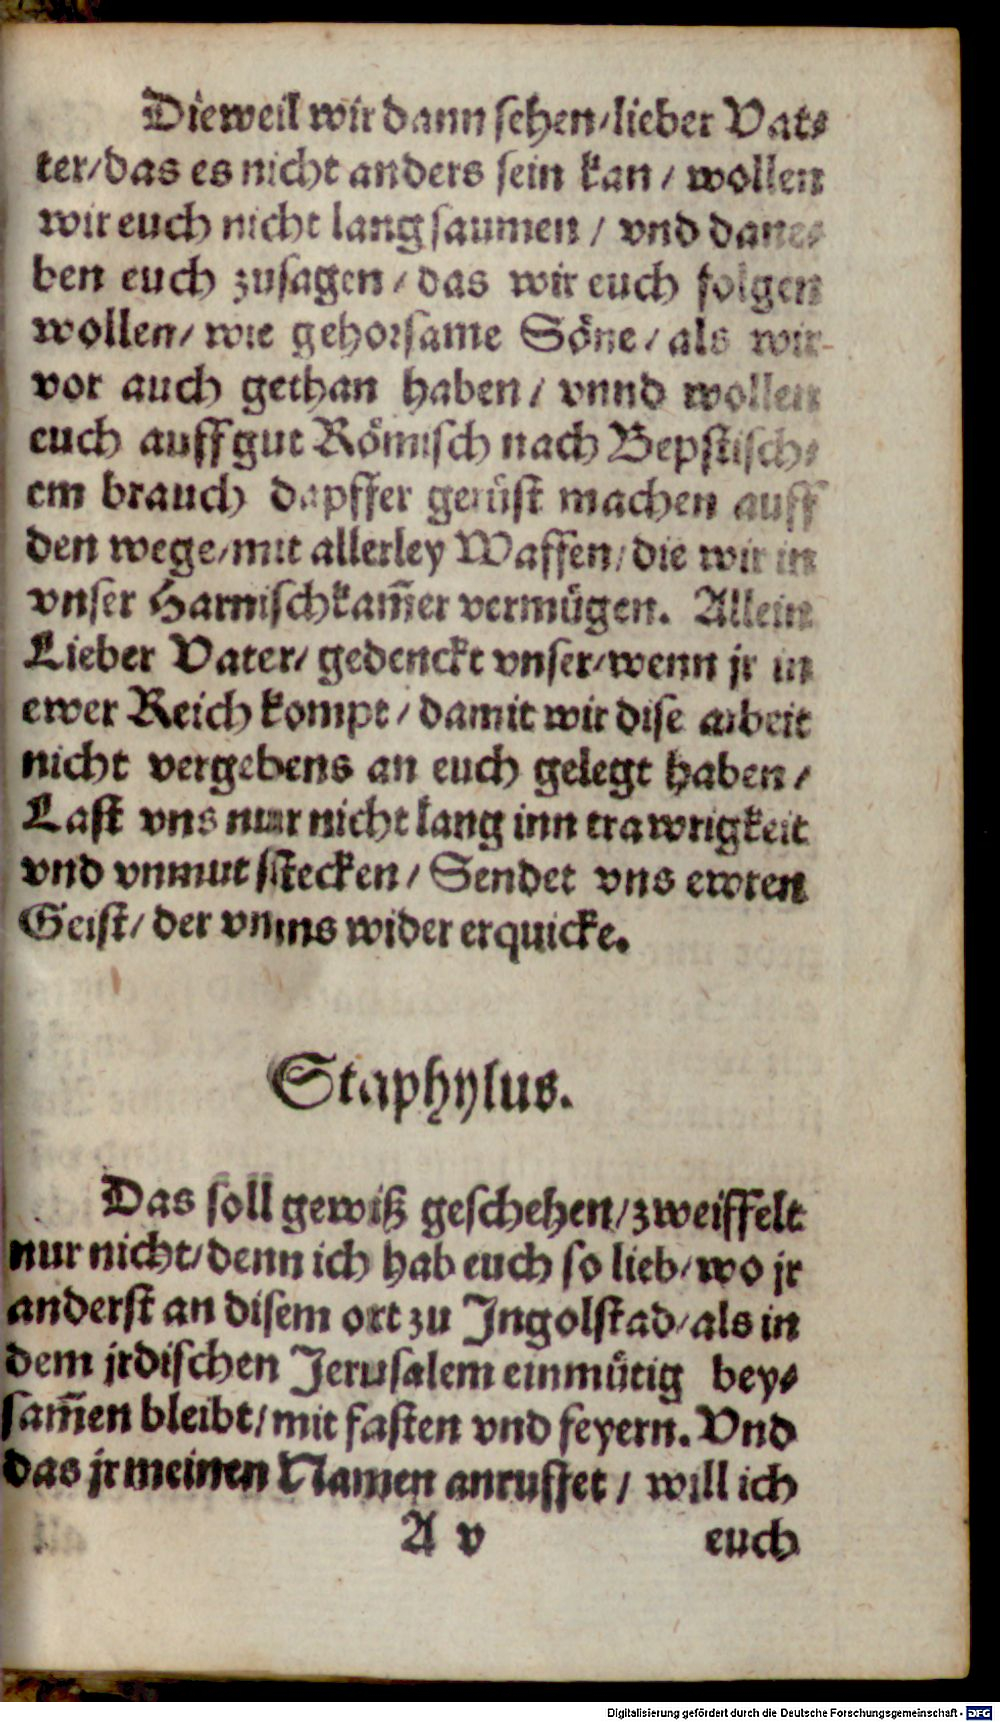 Dieweil wir dann sehen/lieber Vat⸗
ter/das es nicht anders sein kan/ wollen
wir euch nicht lang saumen/ vnd dane⸗
ben euch zusagen/das wir euch folgen
wollen/ wie gehorsame Söne/als wir
vor auch gethan haben/ vnnd wollen
euch auff gut Römisch nach Bepstisch⸗
em brauch dapffer gerüst machen auff
den wege/mit allerley Waffen/die wir in
vnser Harnischkam̃er vermügen. Allein
Lieber Vater/ gedenckt vnser/wenn jr in
ewer Reich kompt/damit wir dise arbeit
nicht vergebens an euch gelegt haben/
Last vns nur nicht lang inn trawrigkeit
vnd vnmut stecken/ Sendet vns ewren
Geist/ der vnns wider erquicke.
Staphylus.
Das soll gewiß geschehen/zweiffelt
nur nicht/denn ich hab euch so lieb/wo jr
anderst an disem ort zu Jngolstad/als in
dem jrdischen Jerusalem einmütig bey⸗
sam̃en bleibt/mit fasten vnd feyern. Vnd
das jr meinen Namen anruffet/ will ich
A v euch
Digitalisierung gefördert durch die Deutsche Forschungsgemeinschaft - DFG